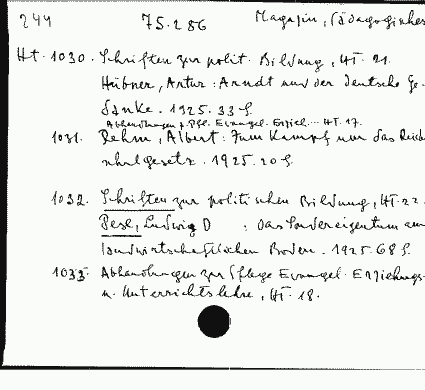 244 75.286 Magazin, Pädagogisches
Ht. 1030. Schriften zur polit. Bildung, HT. 21.
Hübner, Artur: Arndt und der deutsche Ge-
danke. 1925. 33 S.
Abhandlungen z. Pfl. Evangel. Erzieh... HT. 17.
1031. Rehm, Albert: Zum Kampf um das Reichs
schulgesetz. 1925. 20 S.
1032. Schriften zur politischen Bildung, HT. 22.
Pesl, Ludwig D : Das Sondereigentum am
landwirtschaftlichen Boden. 1925. 68 S.
1033. Abhandlungen zur Pflege Evangel. Erziehungs-
u. Unterrichtslehre, HT. 18.